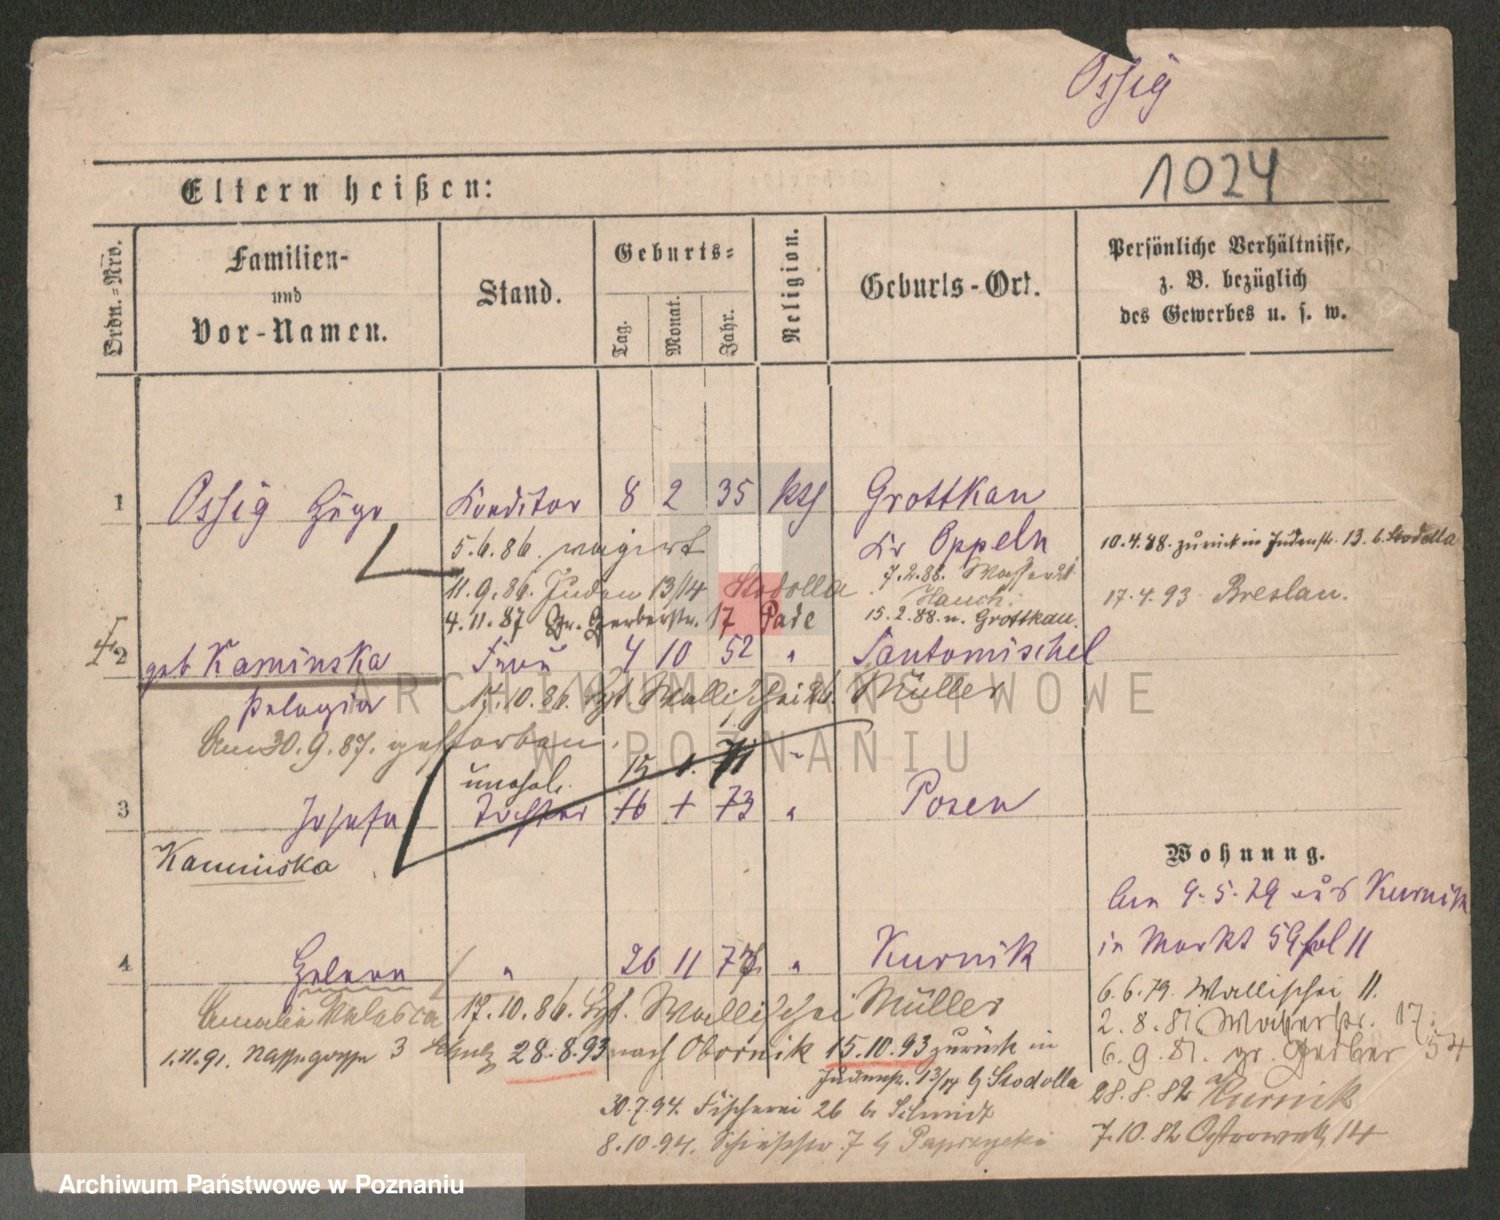 Ossig
1024
Eltern heißen:
Ordn.-Nro.
Familien-
und
Vor-Namen.
Stand.
Geburts-
Tag.
Monat.
Jahr.
Religion.
Geburts-Ort.
Persönliche Verhältnisse,
z. B. bezüglich
des Gewerbes u. s. w.
1 Ossig Hugo Konditor 8 2 35 kth Grottkau
5.6.86. Kr Oppeln 10.4.88. zurück in Judenstr. 13. b. Stodolla
11.9.86. Juden 13/14 Stodolla 7.2.88.
Hauch. 17.4.93 Breslau.
4.11.87 Gr. Gerberstr. 17 Pade 15.2.88. n. Grottkau.
2 geb Kaminska Frau 4 10 52 " Santomischel
Pelagia 17.10.86. Wallischei Müller
Am 30.9.87. gestorben.
unehel. 15 1. 71 "
3 Josefa Tochter 16 1 73 " Posen
Kaminska
Wohnung.
Am 9.5.79 aus Kurnik
in Markt 59 bei 11
4 Helene " 26 11 77 " Kurnik
6.6.79. Wallischei 11.
Amalie Valesca 17.10.86. Wallischei Müller
2.8.81. Wasserstr. 17.
1.11.91. 3 28.8.93 nach Obornik 15.10.93 zurück in
6.9.81. gr. Gerber 54
Judenstr. 13/14 b Stodolla
28.8.82 Kurnik
30.7.94. Fischerei 26 b. Schmidt
7.10.82 14
8.10.94. 7 b
ARCHIWUM PAŃSTWOWE
W POZNANIU
Archiwum Państwowe w Poznaniu